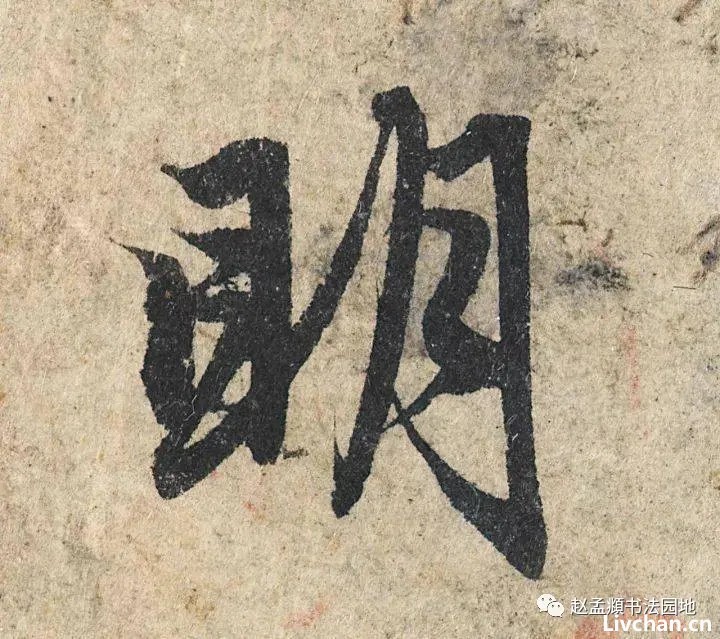 明
赵孟頫书法园地
Livchan.cn